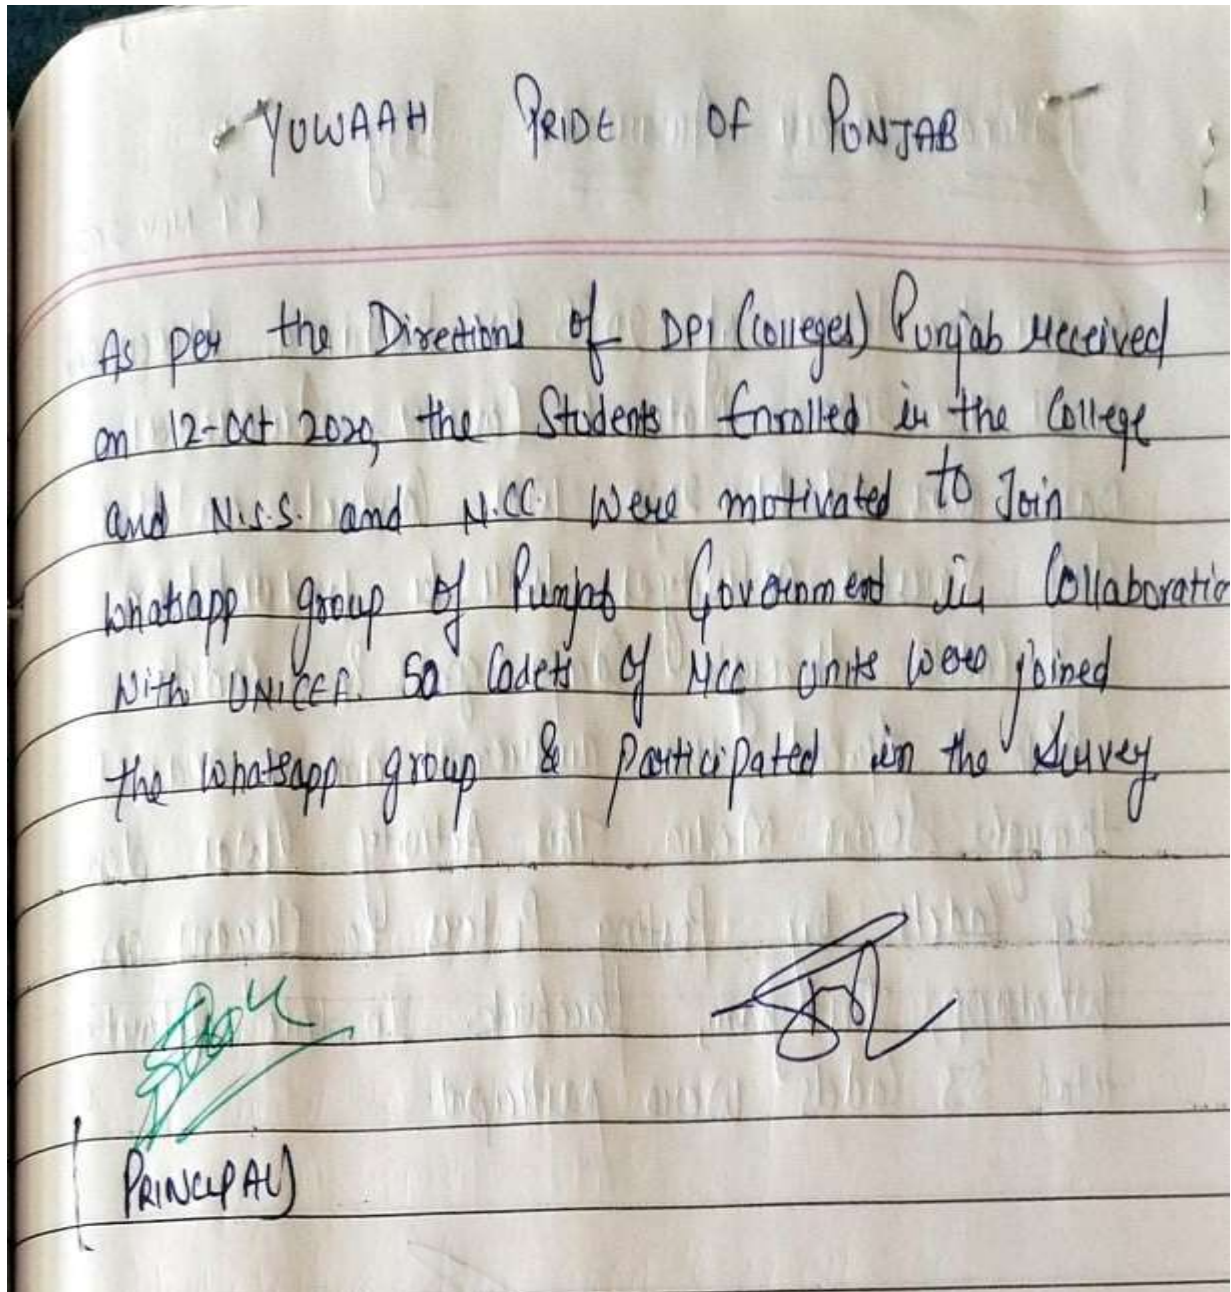 YUWAAH PRIDE OF PUNJAB
As per the Directions of DPI (Colleges) Punjab received
on 12-Oct 2020, the Students Enrolled in the College
and N.S.S. and N.CC. were motivated to Join
whatsapp group of Punjab Government in Collaboratio
With UNICEF. 50 Cadets of NCC units were joined
the whatsapp group & participated in the survey
(PRINCIPAL)